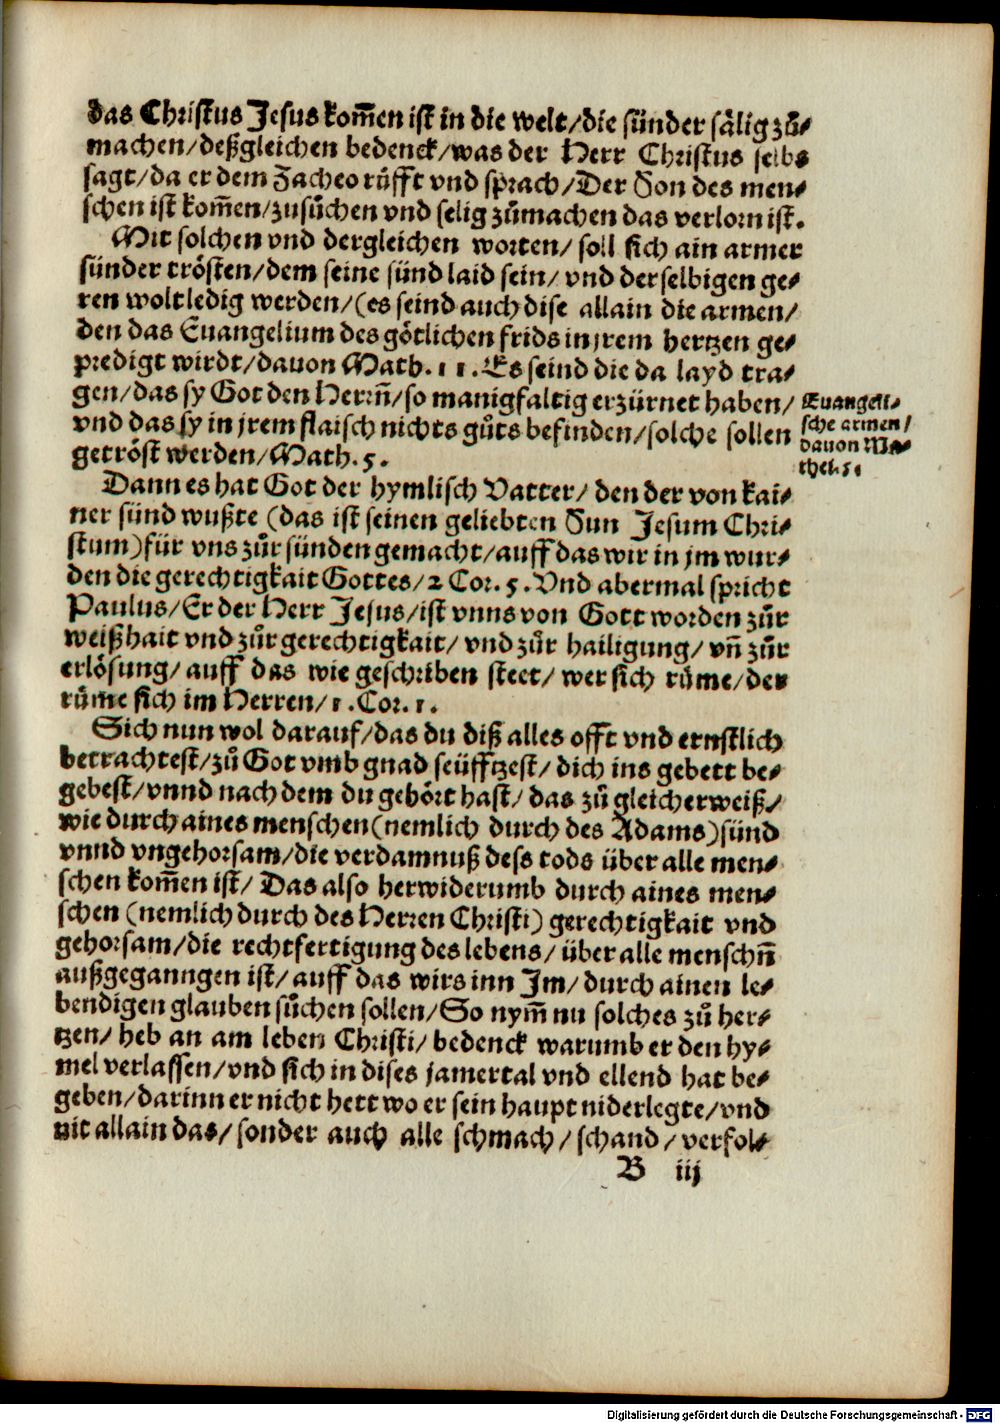 das Christus Jesus kom̅en ist in die welt/die sünder sälig zů⸗
machen/deßgleichen bedenck/was der Herr Christus selbs
sagt/da er dem Zacheo růfft vnd sprach/Der Son des men⸗
schen ist kom̅en/zusůchen vnd selig zůmachen das verlorn ist.
Mit solchen vnd dergleichen worten/ soll sich ain armer
sünder trösten/dem seine sünd laid sein/ vnd derselbigen ge⸗
ren wolt ledig werden/(es seind auch dise allain die armen/
den das Euangelium des götlichen frids in jrem hertzen ge⸗
predigt wirdt/dauon Math. 11. Es seind die da layd tra⸗
gen/das sy Got den Herrn̅/so manigfaltig erzürnet haben/
vnd das sy in jrem flaisch nichts gůts befinden/solche sollen
getröst werden/Math. 5.
Euangeli⸗
sche armen/
dauon Ma⸗
thei. 5.
Dann es hat Got der hymlisch Vatter/ den der von kai⸗
ner sünd wußte (das ist seinen geliebten Sun Jesum Chri⸗
stum) für vns zůr sünden gemacht/auff das wir in jm wur⸗
den die gerechtigkait Gottes/2 Cor. 5. Vnd abermal spricht
Paulus/Er der Herr Jesus/ist vnns von Gott worden zůr
weißhait vnd zůr gerechtigkait/ vnd zůr hailigung/ vn̅ zůr
erlösung/ auff das wie geschriben steet/ wer sich růme/der
růme sich im Herren/1. Cor. 1.
Sich nun wol darauf/das du diß alles offt vnd ernstlich
betrachtest/zů Got vmb gnad seüfftzest/ dich ins gebett be⸗
gebest/vnnd nach dem du gehört hast/ das zů gleicherweiß/
wie durch aines menschen(nemlich durch des Adams)sünd
vnnd vngehorsam/die verdamnuß dess tods über alle men⸗
schen kom̅en ist/ Das also herwiderumb durch aines men⸗
schen (nemlich durch des Herren Christi) gerechtigkait vnd
gehorsam/die rechtfertigung des lebens/ über alle menschn̅
außgeganngen ist/ auff das wirs inn Im/ durch ainen le⸗
bendigen glauben sůchen sollen/So nym̅ nu solches zů her⸗
tzen/ heb an am leben Christi/ bedenck warumb er den hy⸗
mel verlassen/vnd sich in dises jamertal vnd ellend hat be⸗
geben/darinn er nicht hett wo er sein haupt niderlegte/vnd
nit allain das/ sonder auch alle schmach/ schand/ verfol⸗
B iij
Digitalisierung gefördert durch die Deutsche Forschungsgemeinschaft - DFG